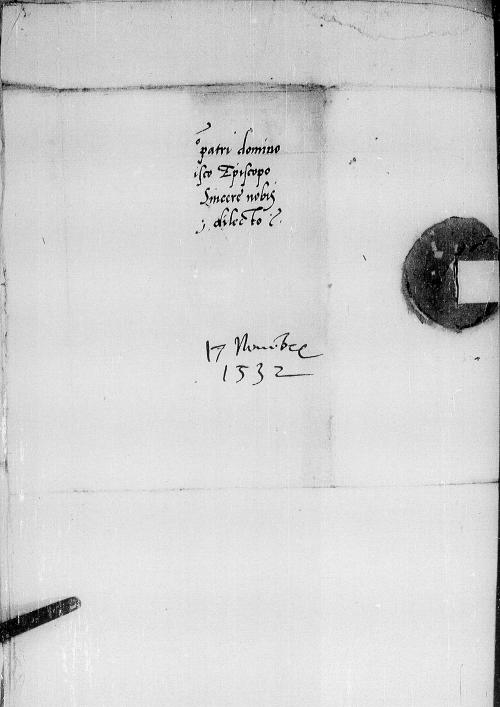 patri domino
isco Episcopo
Sincere nobis
dilecto
17 Nouembre
1532